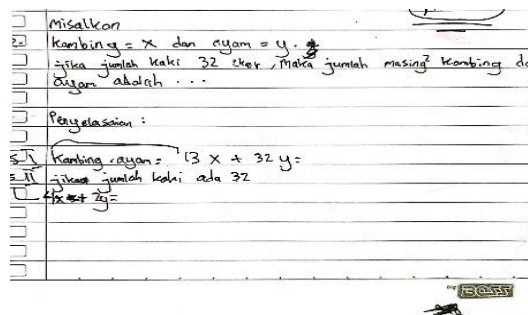 Misalkan
2. Kambing = x dan ayam = y.
jika jumlah kaki 32 ekor, maka jumlah masing² kambing da
ayam adalah ...
Penyelesaian :
Kambing, ayam = 13 x + 32 y =
jika jumlah kaki ada 32
4x + 2y =
BOSS